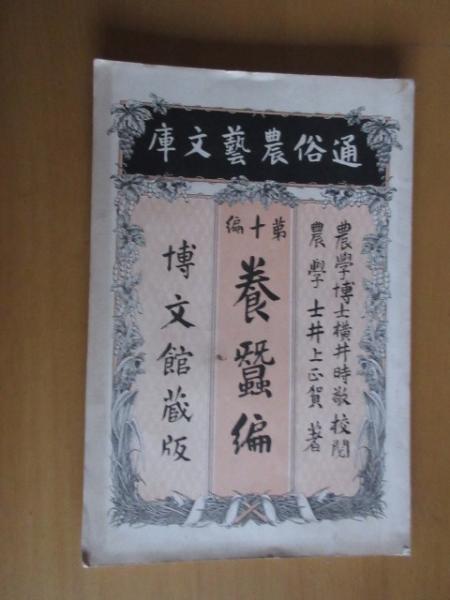 通俗農藝文庫
農學博士横井時敬校閲
農學士井上正賀著
第十編
養蠶編
博文館藏版